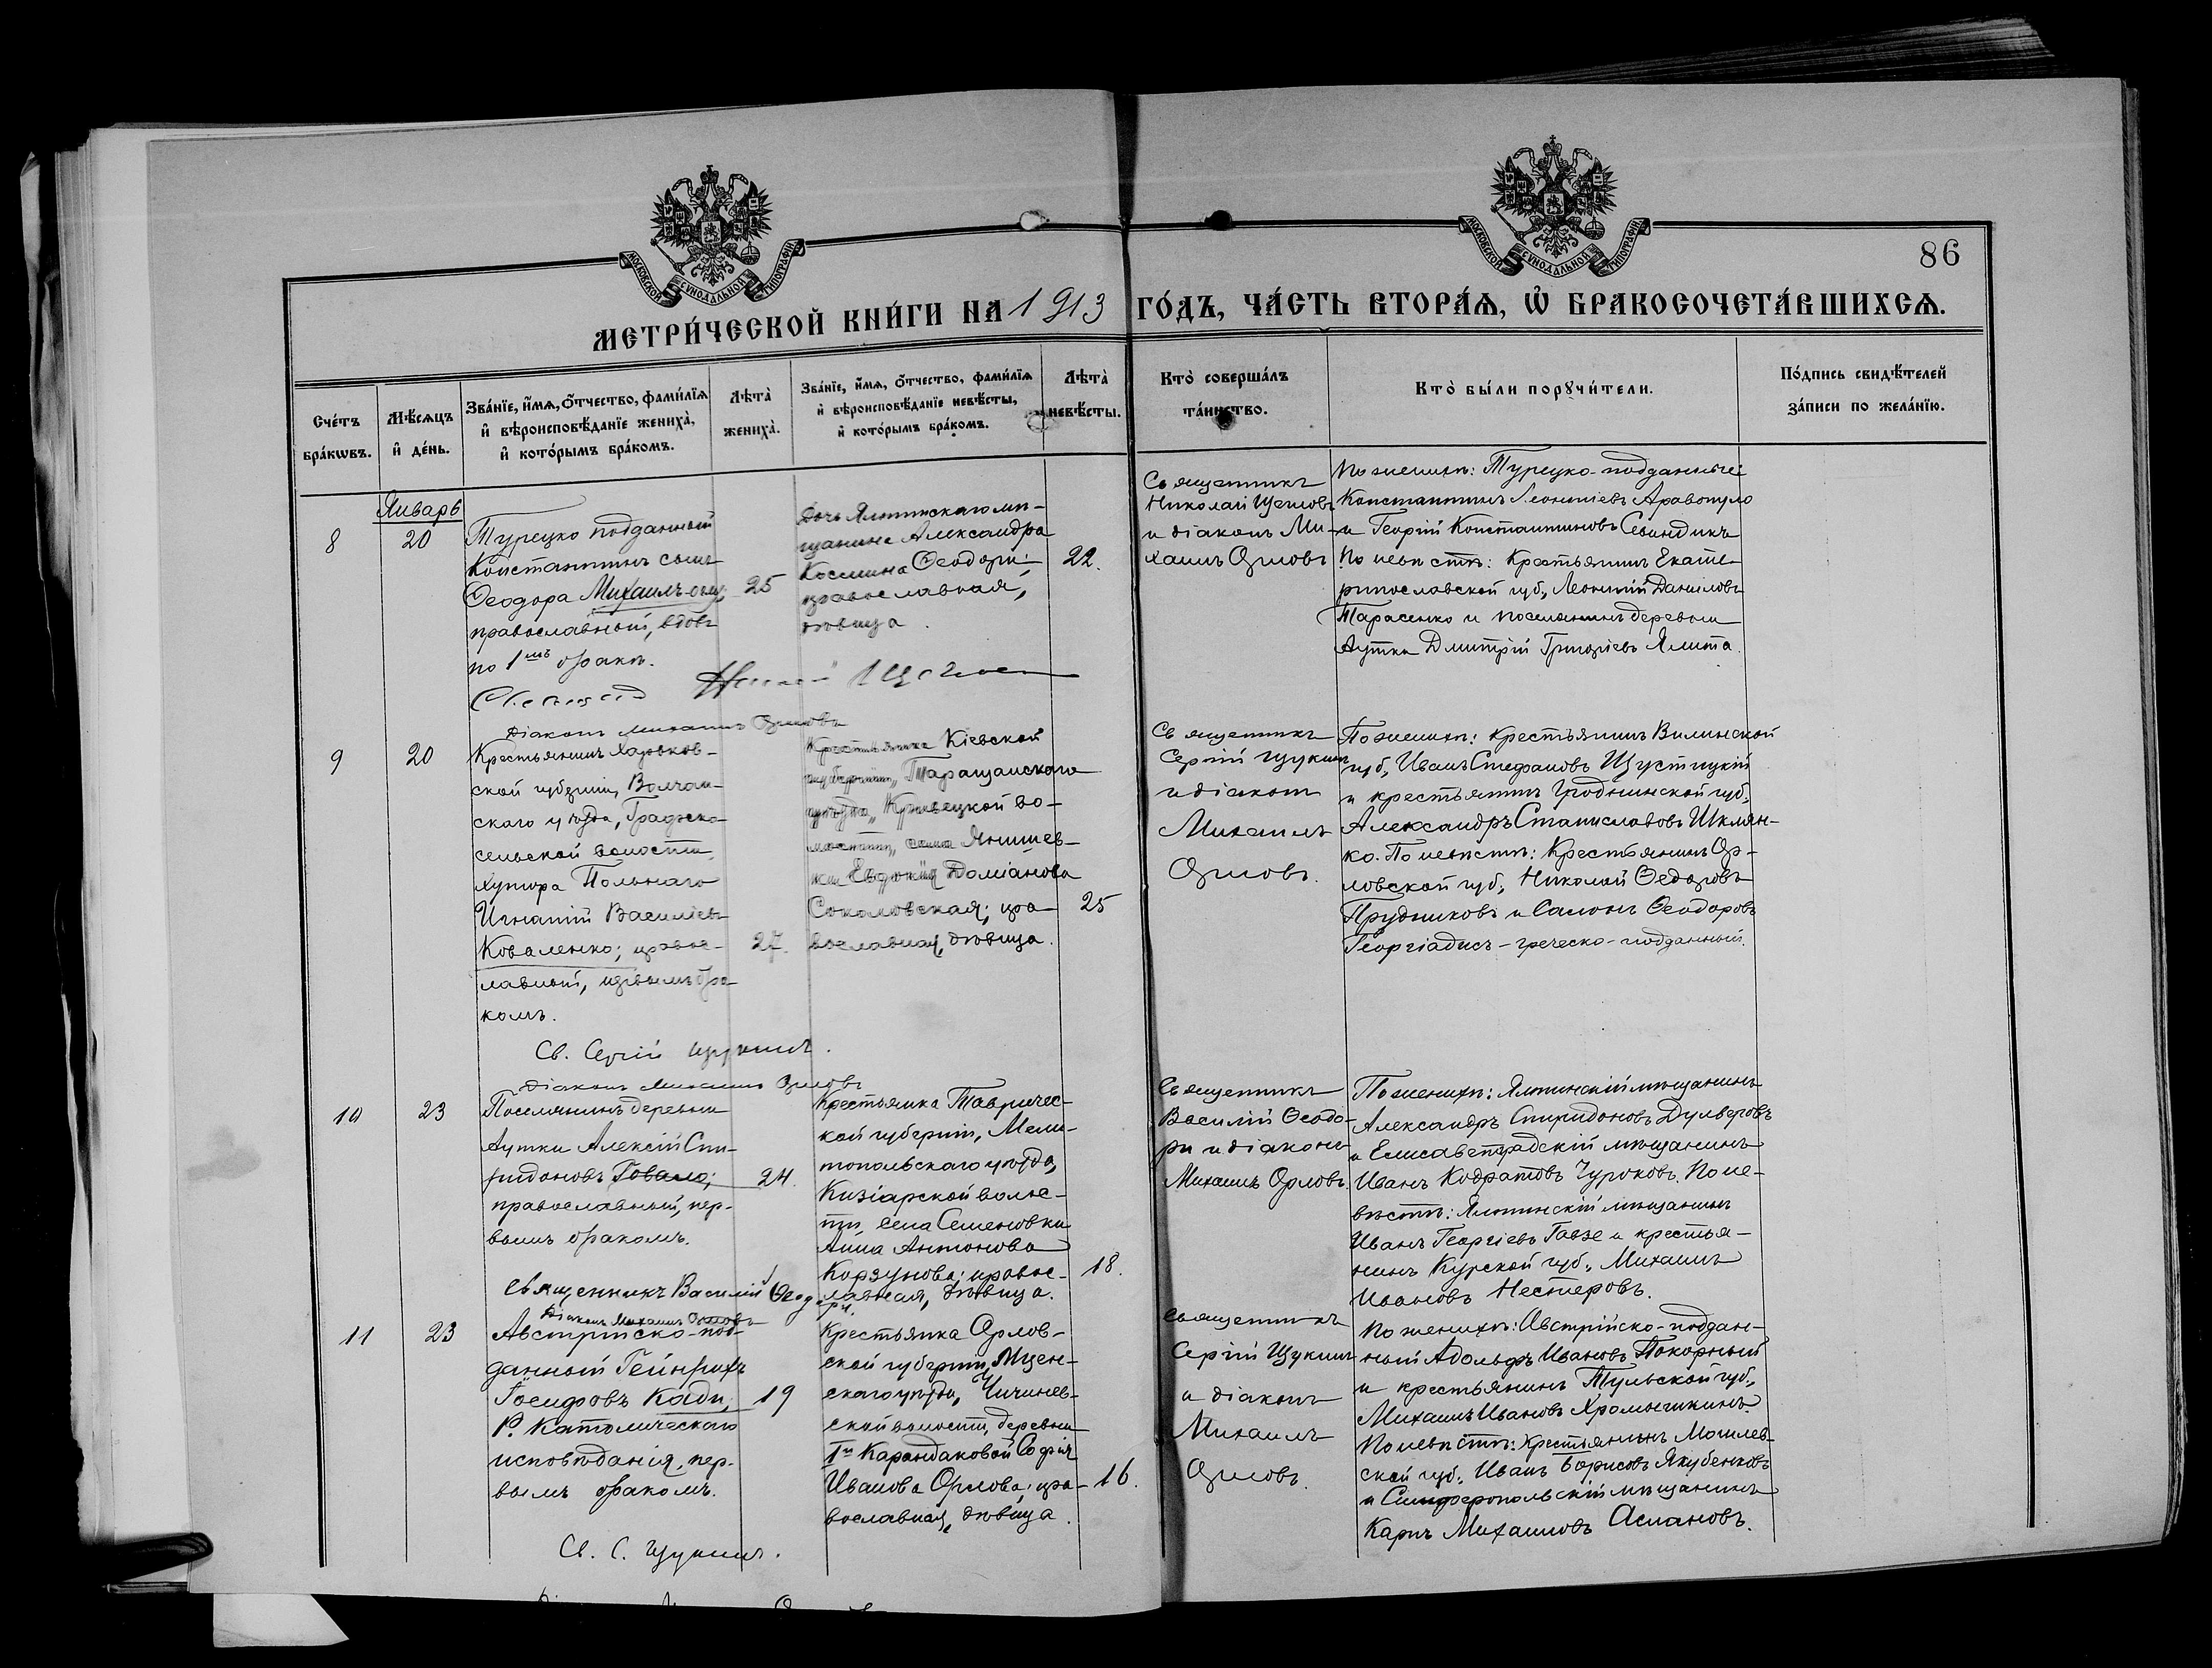 МОСКОВСКОЙ СѴНОДАЛЬНОЙ ТИПОГРАФІИ
МОСКОВСКОЙ СѴНОДАЛЬНОЙ ТИПОГРАФІИ
86
МЕТРИ́ЧЕСКОЙ КНИ́ГИ НА 1913 ГО́ДЪ, ЧА́СТЬ ВТОРА́Я, Ѡ҆ БРАКОСОЧЕТА́ВШИХСЯ.
Сче́тъ бра́кѡвъ.
Мѣ́сяцъ и҆ де́нь.
Зва́нїе, и҆́мя, ѻ҆́тчество, фами́лїя и҆ вѣроисповѣ́данїе жениха̀, и҆ кото́рымъ бра́комъ.
Лѣта̀ жениха̀.
Зва́нїе, и҆́мя, ѻ҆́тчество, фами́лїя и҆ вѣроисповѣ́данїе невѣ́сты, и҆ кото́рымъ бра́комъ.
Лѣта̀ невѣ́сты.
Кто̀ соверша́лъ та́инство.
Кто̀ бы́ли порꙋчи́тели.
По́дпись свидѣ́телей за́писи по жела́нїю.
Январь
8
20
Турецко подданный
Константинъ сынъ
Ѳеодора Михаилъ-оглу;
православный, вдовъ
по 1мъ бракѣ.
25
Дочь Ялтинскаго мѣ-
щанина Александра
Космина Ѳеодори;
православная,
дѣвица.
22.
Священникъ
Николай Щегловъ
и діаконъ Ми-
хаилъ Орловъ
По женихѣ: Турецко-подданные
Константинъ Леонтіевъ Аравопуло
и Георгій Константиновъ Севиндикъ
По невѣстѣ: Крестьянинъ Екате-
ринославской губ., Леонтій Даниловъ
Тарасенко и поселянинъ деревни
Аутка Дмитрій Григоріевъ Ялита.
Діаконъ Михаилъ Орловъ
9
20
Крестьянинъ Харьков-
ской губерніи, Волчан-
скаго уѣзда, Графско-
сельской волости,
хутора Польнаго
Игнатій Василіевъ
Коваленко; правос-
лавный, первымъ бра-
комъ.
27.
Крестьянка Кіевской
губерніи, Таращанскаго
уѣзда, Кривецкой во-
лости, села Янишев-
ки Евдокія Доміанова
Соколовская; пра-
вославная, дѣвица.
25
Священникъ
Сергій Щукинъ
и діаконъ
Михаилъ
Орловъ.
По женихѣ: крестьянинъ Виленской
губ., Иванъ Стефановъ Шустицкій
и крестьянинъ Гродненской губ.,
Александръ Станиславовъ Шклян-
ко. По невѣстѣ: Крестьянинъ Ор-
ловской губ., Николай Ѳедоровъ
Прудниковъ и Самонъ Ѳеодоровъ
Георгіадисъ - греческо-подданный.
Св. Сергій Щукинъ.
Діаконъ Михаилъ Орловъ
10
23
Поселянинъ деревни
Аутки Алексій Спи-
ридоновъ Говало;
православный, пер-
вымъ бракомъ.
24.
Крестьянка Тавричес-
кой губерніи, Мели-
топольскаго уѣзда,
Кизіарской волос-
ти, села Семеновки
Анна Антонова
Корзунова; правос-
лавная, дѣвица.
18.
Священникъ
Василій Ѳеодо-
ри и діаконъ
Михаилъ Орловъ.
По женихѣ: Ялтинскій мѣщанинъ
Александръ Спиридоновъ Дулверовъ
и Елисаветградскій мѣщанинъ
Иванъ Кодратовъ Чуроковъ. По не-
вѣстѣ: Ялтинскій мѣщанинъ
Иванъ Георгіевъ Говзе и крестья-
нинъ Курской губ., Михаилъ
Ивановъ Нестеровъ.
Священникъ Василій Ѳеодори.
Діаконъ Михаилъ Орловъ
11
23
Австрійско-под-
данный Гейнрихъ
Іосифовъ Кади;
Р. Католическаго
исповѣданія, пер-
вымъ бракомъ.
19
Крестьянка Орлов-
ской губерніи, Мцен-
скаго уѣзда, Чичинев-
ской волости, деревни
1й Карандаковой Софія
Иванова Орлова; пра-
вославная, дѣвица.
16.
Священникъ
Сергій Щукинъ
и діаконъ
Михаилъ
Орловъ.
По женихѣ: Австрійско-поддан-
ный Адольфъ Ивановъ Покорный
и крестьянинъ Тульской губ.,
Михаилъ Ивановъ Хромычикинъ.
По невѣстѣ: Крестьянинъ Могилев-
ской губ., Иванъ Борисовъ Якубенковъ
и Симферопольскій мѣщанинъ
Карпъ Михаиловъ Аслановъ.
Св. С. Щукинъ.